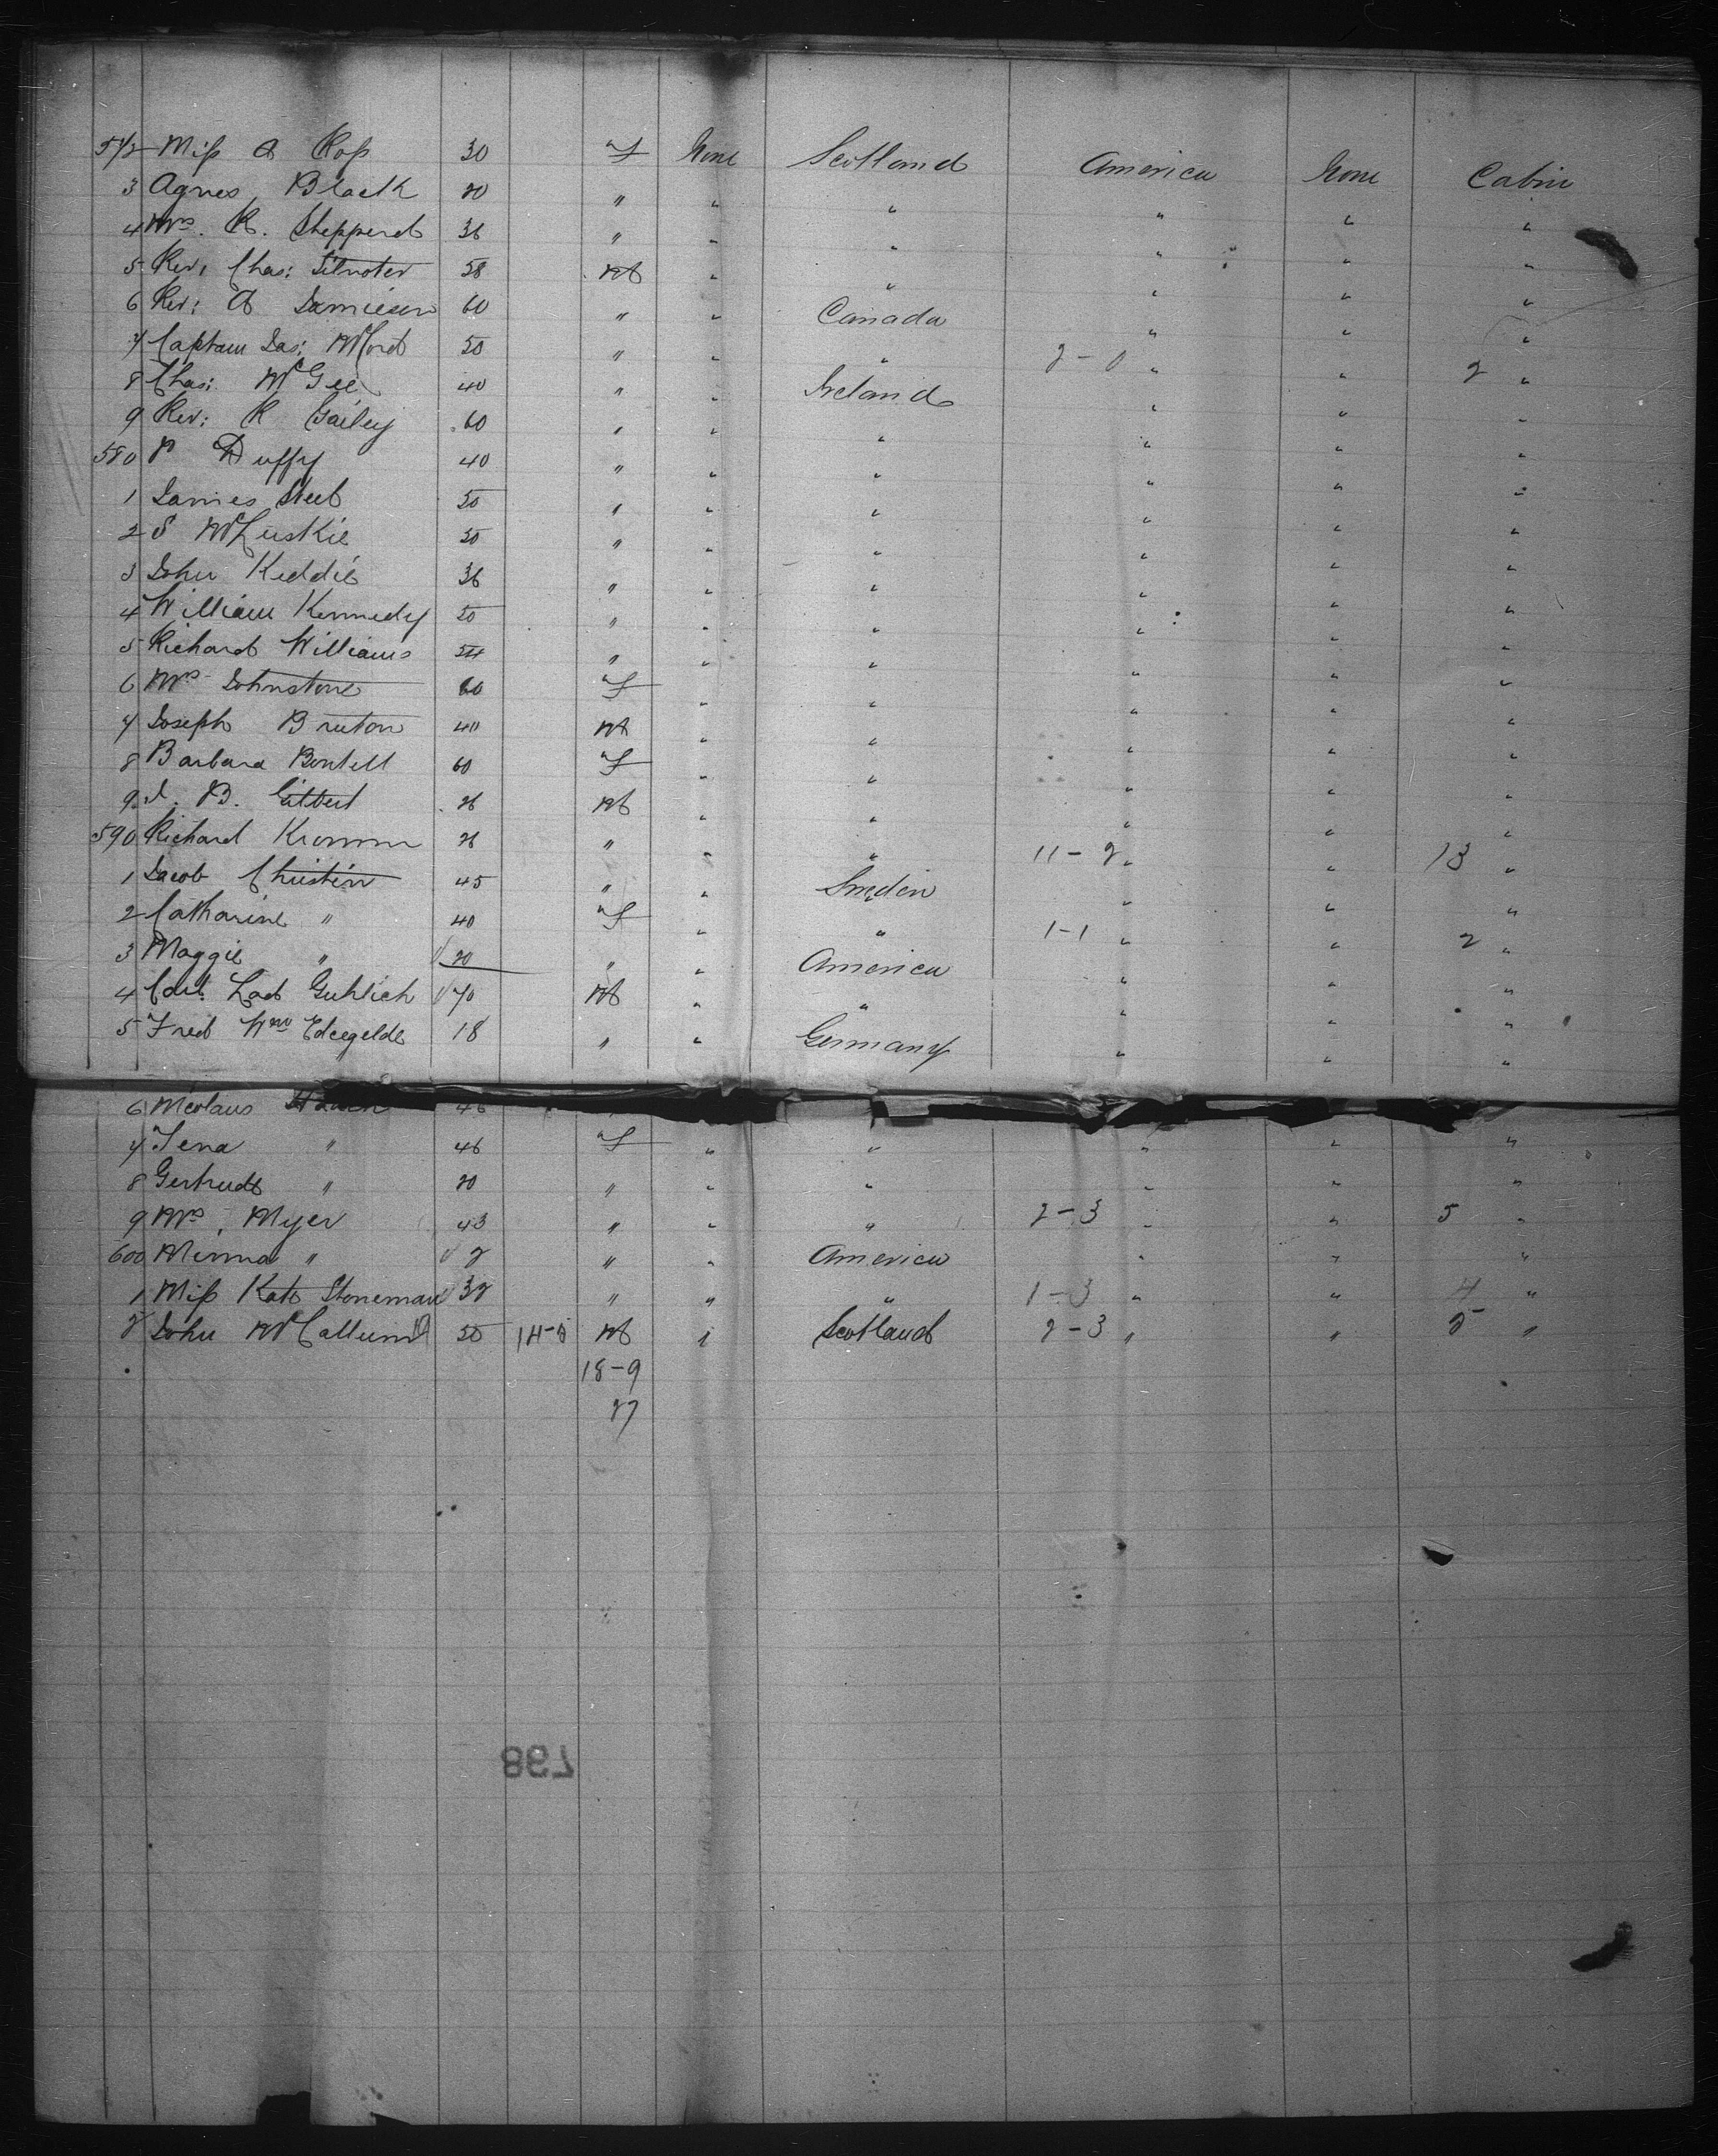 572 Miss A Ross 30 F None Scotland America None Cabin
3 Agnes Black 20 " " " " " "
4 Mrs. R. Shepperd 36 " " " " " "
5 Rev. Chas: 58 M " " " " "
6 Rev: A Jamieson 60 " " Canada " " "
7 Captain Jas: 50 " " " 2-0 " " 2 "
8 Chas: McGee 40 " " Ireland " " "
9 Rev: R Gailey 60 " " " " " "
580 P Duffy 40 " " " " " "
1 James Steel 50 " " " " " "
2 S McLuskie 30 " " " " " "
3 John Keddie 36 " " " " " "
4 William Kennedy 50 " " " " " "
5 Richard Williams 54 " " " " " "
6 Mrs Johnstone 60 F " " " " "
7 Joseph Bruton 40 M " " " " "
8 Barbara 60 F " " " " "
9 J. B. Gilbert 26 M " " " " "
590 Richard 26 " " " 11-2 " " 13 "
1 Jacob Christin 45 " " Sweden " " "
2 Catharine " 40 F " " 1-1 " " 2 "
3 Maggie " 20 " " America " " "
4 Carl 70 M " " " " "
5 Fred Wm 18 " " Germany " " "
6 46
7 Tena " 46 F " " " " "
8 Gertrude " 20 " " " " " "
9 Mrs. Myer 43 " " " 2-3 " " 5 "
600 Minna " 2 " " America " " "
1 Miss Kate Stoneman 32 " " " 1-3 " " 4 "
2 John McCallum 50 14-5 M " Scotland 2-3 " " 5 "
18-9
27
798